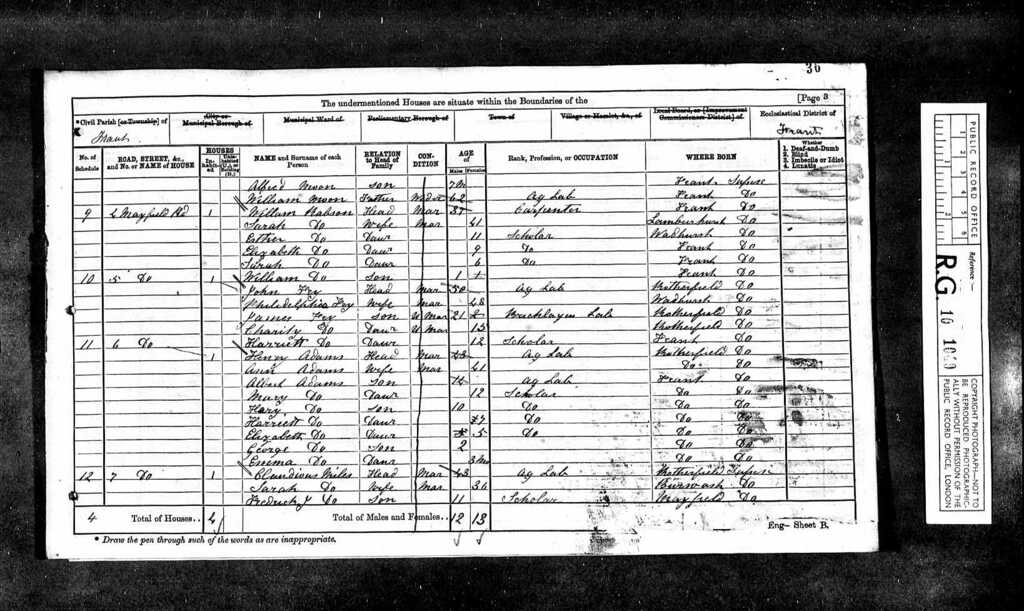 36
The undermentioned Houses are situate within the Boundaries of the [Page 3
*Civil Parish [or Township] of City or Municipal Borough of Municipal Ward of Parliamentary Borough of Town of Village or Hamlet, &c., of Local Board, or [Improvement Commissioners District] of Ecclesiastical District of
Frant Frant
No. of Schedule ROAD, STREET, &c., and No. or NAME of HOUSE HOUSES Inhabited Uninhabited (U.), or Building (B.) NAME and Surname of each Person RELATION to Head of Family CONDITION AGE of Males Females Rank, Profession, or OCCUPATION WHERE BORN Whether 1. Deaf-and-Dumb 2. Blind 3. Imbecile or Idiot 4. Lunatic
Alfred Moon Son 7m Frant
William Moon Father 62 Ag Lab Frant Do
9 Mayfield Rd 1 William Head Mar 37 Carpenter Frant Do
Sarah Do Wife Mar 41 Lamberhurst Do
Esther Do Daur 11 Scholar Wadhurst Do
Elizabeth Do Daur 9 Do Frant Do
Sarah Do Daur 6 Do Frant Do
William Do Son 1 Frant Do
10 5 Do 1 John Head Mar 50 Ag Lab Rotherfield Do
Philadelphia Wife Mar 48 Wadhurst Do
James Son U Mar 21 Lab Rotherfield Do
Charity Do Daur U Mar 15 Rotherfield Do
Harriett Do Daur 12 Scholar Frant Do
11 6 Do 1 Henry Adams Head Mar 43 Ag Lab Rotherfield Do
Ann Adams Wife Mar 41 Do Do
Albert Adams Son 14 Ag Lab Frant Do
Mary Do Daur 12 Scholar Do Do
Hary Do Son 10 Do Do Do
Harriett Do Daur 7 Do Do Do
Elizabeth Do Daur 5 Do Do Do
George Do Son 2 Do Do
Emma Do Daur 3 Mo Do Do
12 7 Do 1 Miles Head Mar 43 Ag Lab Rotherfield
Sarah Do Wife Mar 36 Burwash Do
Do Son 11 Scholar Mayfield Do
4 Total of Houses.. 4 Total of Males and Females.. 12 13 Eng— Sheet B.
* Draw the pen through such of the words as are inappropriate.
PUBLIC RECORD OFFICE
1 2 3 4 5 6
Reference:—
RG 10
COPYRIGHT PHOTOGRAPH—NOT TO BE REPRODUCED PHOTOGRAPHICALLY WITHOUT PERMISSION OF THE PUBLIC RECORD OFFICE, LONDON